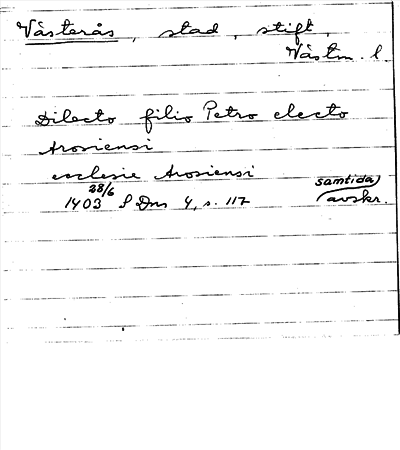 Västerås, stad, stift,
Västm. l
Dilecto filio Petro electo
Arosiensi
ecclesie Arosiensi
28/6 samtida
1403 SDns 4, s. 117 avskr.